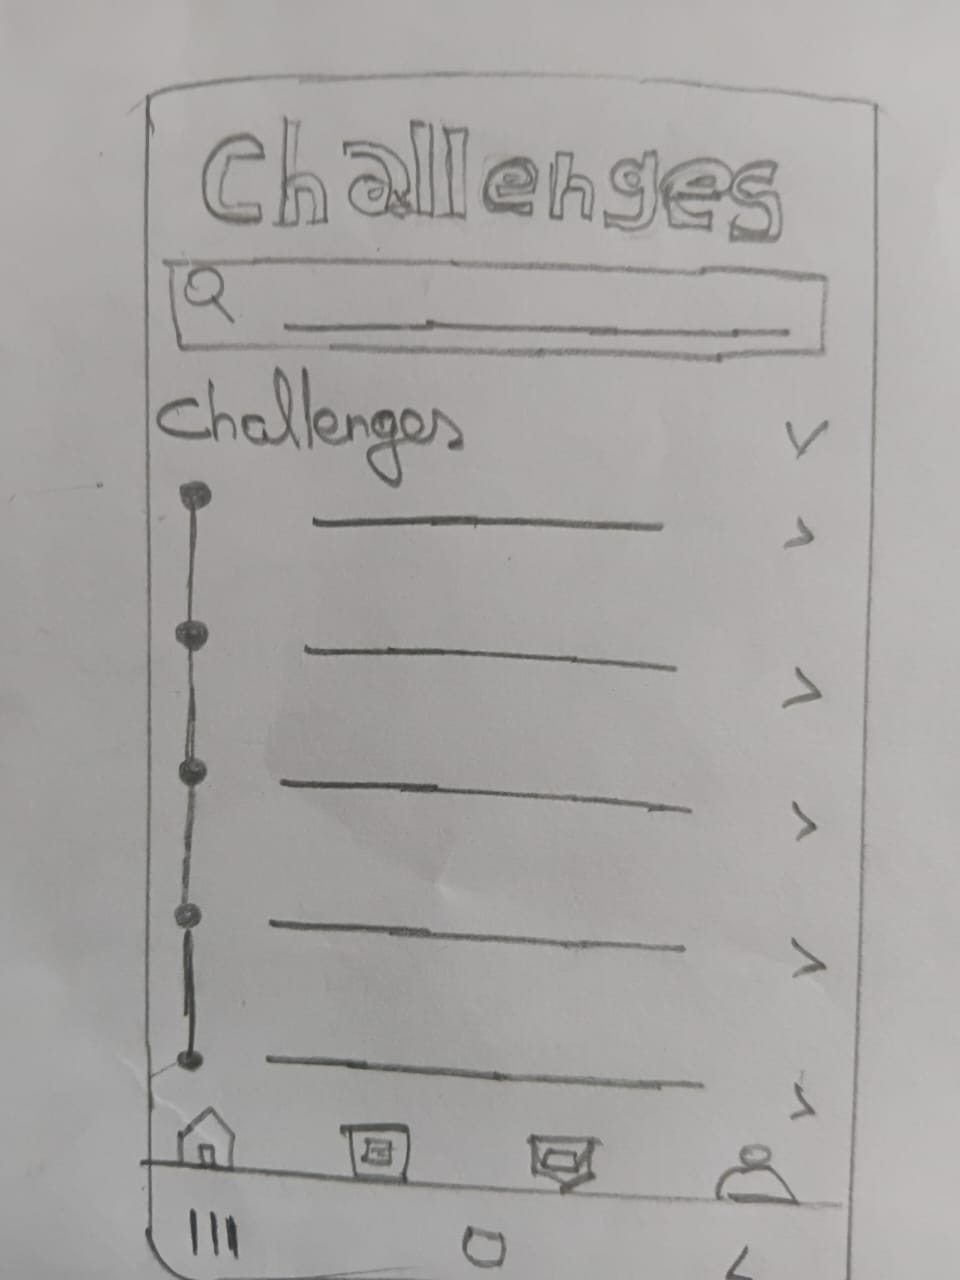 Challenges
Challenges